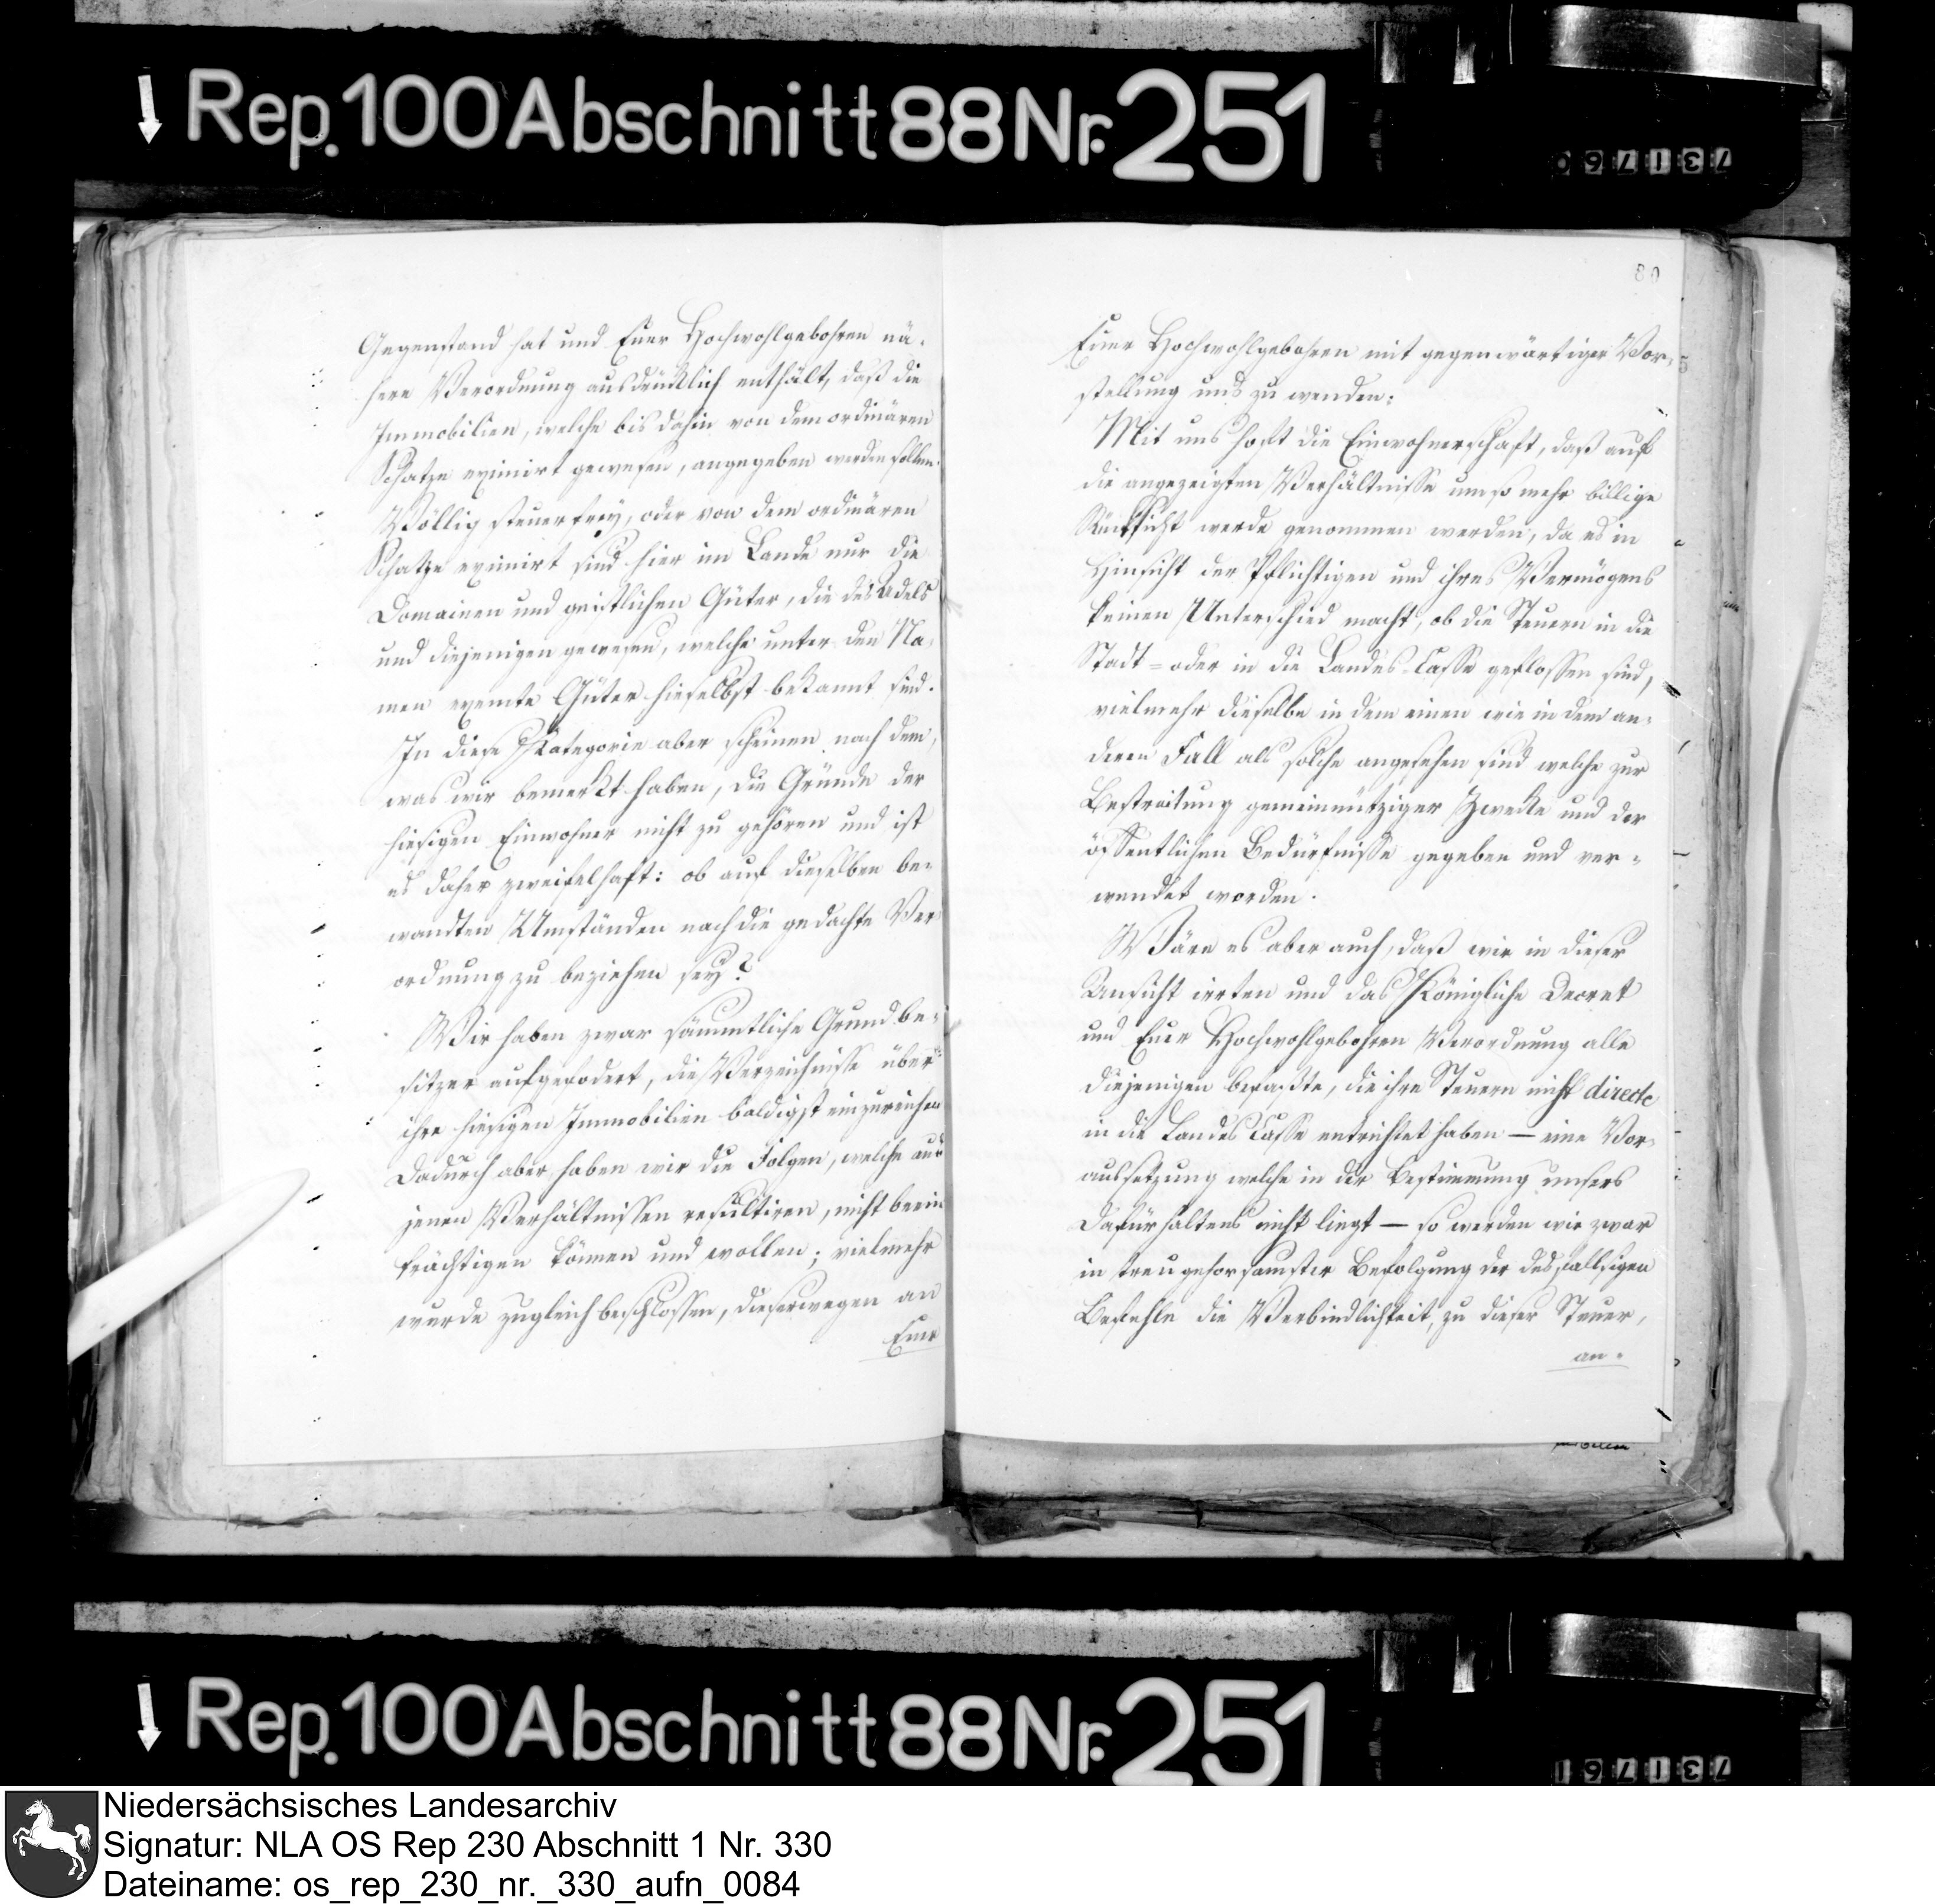 Rep. 100 Abschnitt 88 Nr. 251
731760
Gegenstand hat und Euer Hochwohlgebohren nä-
here Verordnung ausdrücklich enthält, daß die
Immobilien, welche bis dahin von dem ordinären
Schatze eximirt gewesen, angegeben werden sollen.
Völlig steuerfrey, oder von dem ordinären
Schatze eximirt sind hier im Lande nur die
Domainen und geistlichen Güter, die des Adels
und diejenigen gewesen, welche unter den Na-
men exemte Güter hieselbst bekannt sind.
In diese Kategorie aber scheinen nach dem,
was wir bemerkt haben, die Gründe der
hiesigen Einwohner nicht zu gehören und ist
es daher zweifelhaft: ob auf dieselben be-
wandten Umständen nach die gedachte Ver
ordnung zu beziehen sey?
Wir haben zwar sämmtliche Grundbe-
sitzer aufgefodert, die Verzeichnisse über
ihre hiesigen Immobilien baldigst einzureichen
Dadurch aber haben wir die Folgen, welche aus
jenen Verhältnissen resultiren, nicht beein
trächtigen können und wollen; vielmehr
wurde zugleich beschlossen, dieserwegen an
Euer
80
Euer Hochwohlgebohren mit gegenwärtiger Vor-
stellung uns zu wenden.
Mit uns hofft die Einwohnerschaft, daß auf
die angezeigten Verhältnisse um so mehr billige
Rücksicht werde genommen werden, da es in
Hinsicht der Pflichtigen und ihres Vermögens
keinen Unterschied macht, ob die Steuern in die
Stadt- oder in die Landes-Casse geflossen sind,
vielmehr dieselbe in dem einen wie in dem an-
deren Fall als solche angesehen sind welche zur
Bestreitung gemeinnütziger Zwecke und der
öffentlichen Bedürfnisse gegeben und ver-
wendet worden.
Wäre es aber auch, daß wir in dieser
Ansicht irrten und das Königliche Decret
und Euer Hochwohlgebohren Verordnung alle
diejenigen befaßte, die ihre Steuern nicht directe
in die Landes Casse entrichtet haben — eine Vor-
aussetzung welche in der Bestimmung unsers
Dafürhaltens nicht liegt — so werden wir zwar
in treu gehorsamster Befolgung der desfallsigen
Befehle die Verbindlichkeit, zu dieser Steuer,
an-
Rep. 100 Abschnitt 88 Nr. 251
731761
Niedersächsisches Landesarchiv
Signatur: NLA OS Rep 230 Abschnitt 1 Nr. 330
Dateiname: os_rep_230_nr._330_aufn_0084